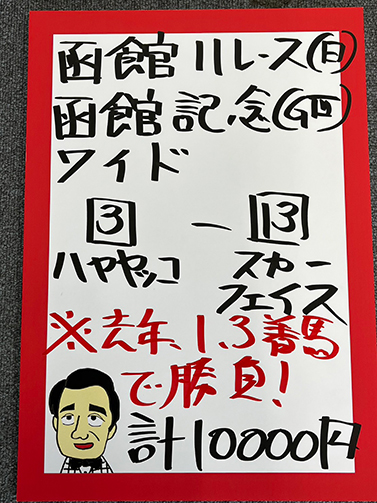 函館11レース(日)
函館記念(GⅢ)
ワイド
3 － 13
ハヤヤッコ スカーフェイス
※去年、1、3着馬
で勝負!
計10000円